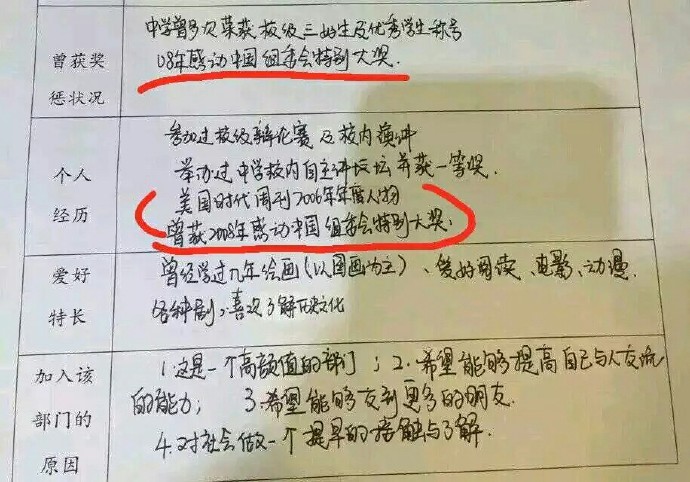 曾获奖
惩状况
中学曾多次荣获校级三好生及优秀学生称号
08年感动中国组委会特别大奖.
个人
经历
参加过校级辩论赛及校内演讲
举办过中学校内自主讲坛并获一等奖.
美国时代周刊2006年年度人物
曾获2008年感动中国组委会特别大奖.
爱好
特长
曾经学过九年绘画(以国画为主)、爱好阅读、电影、动漫
各种剧、喜欢了解历史文化
加入该
部门的
原因
1.这是一个高颜值的部门;2.希望能够提高自己与人交流
的能力; 3.希望能够交到更多的朋友.
4.对社会做一个提早的接触与了解.